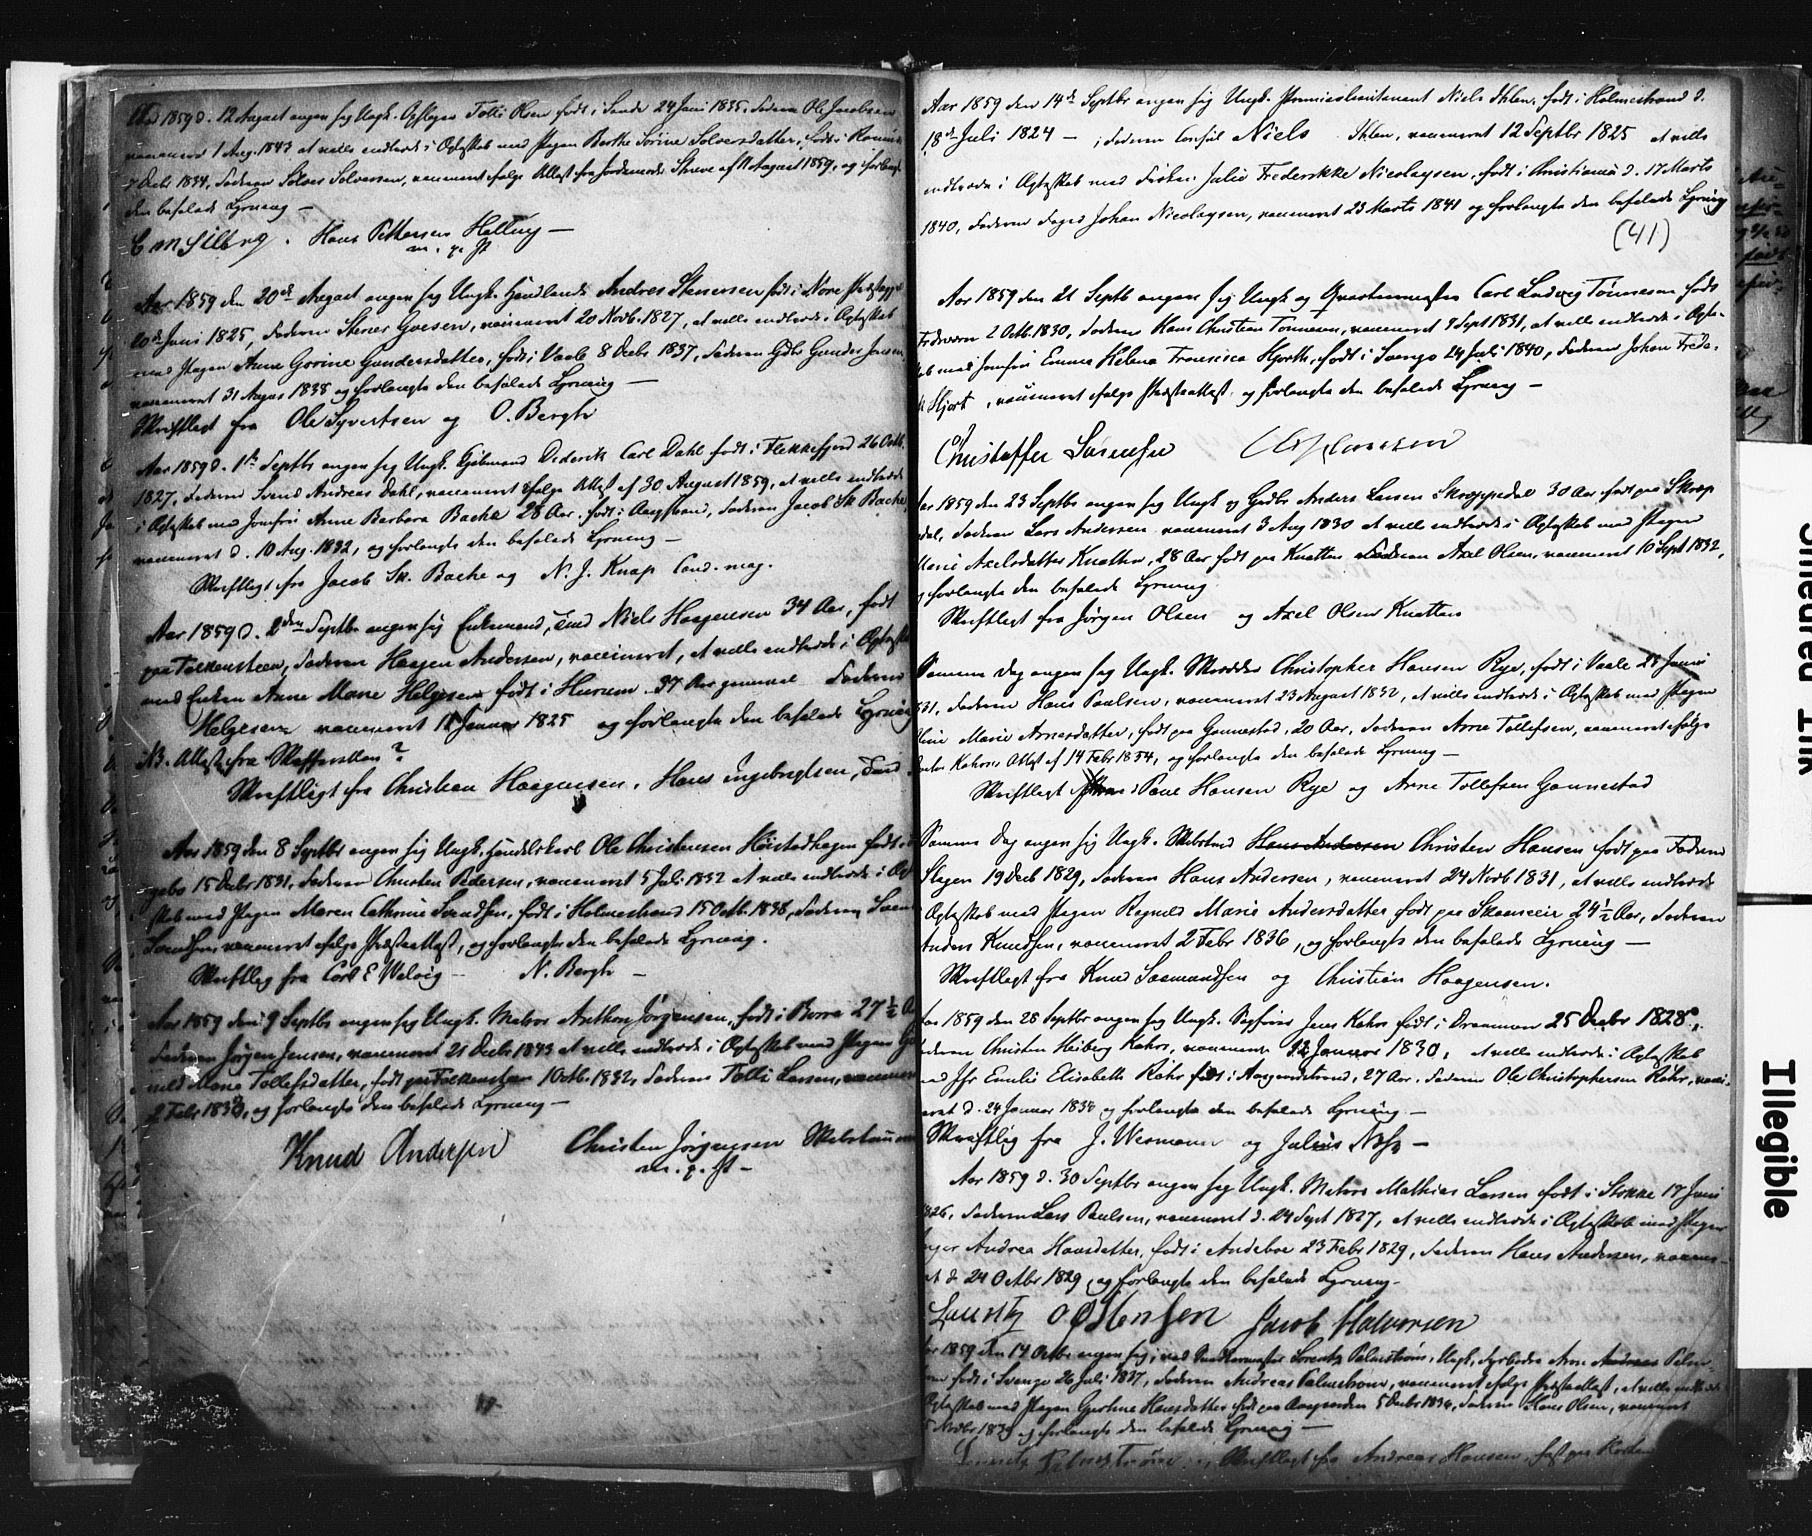 Aar 1859 d. 12 August angav sig Ungk. Tolli Olsen født i Sande 24 Juni 1835, Faderen Ole Jacobsen
vaccineret 1 Aug. 1843 at ville indtræde i Ægteskab med Pigen Berthe Sørine Solversdatter, født i
7 Decbr 1834, Faderen Solver Solversen, vaccineret ifølge Attest fra Jordemoder af 11 August 1859, og forlangte
den befalede Lysning —
Hans Pettersen Holtung —
m. p. P.
Aar 1859 den 20de August angav sig Ungk. Handlende Andres Stenersen født i Nore Præstegjeld
20de Juni 1825, Faderen Stener Goesen, vaccineret 20 Novb. 1827, at ville indtræde i Ægteskab
med Pigen Anne Gorine Gundersdatter, født i Vaale 8 Decbr 1837, Faderen Gdbr Gunder Jensen
vaccineret 31 August 1838 og forlangte den befalede Lysning —
Skriftligt fra Ole Syvertsen og O. Bergh
Aar 1859 d. 1ste Septbr angav sig Ungk. Kjøbmand Diderik Carl Dahl født i Flekkefjord 26 Octb.
1827, Faderen Svend Andreas Dahl, vaccineret ifølge Attest af 30 August 1859, at ville indtræde
i Ægteskab med Jomfru Anne Barbara Bache 28 Aar, født i Aasgstrand, Faderen Jacob Sk. Bache
vaccineret d. 10 Aug. 1832, og forlangte den befalede Lysning —
Skriftligt fra Jacob Sk. Bache og N. J. Knap Cand. mag.
Aar 1859 d. 2den Septbr angav sig Enkemand, Niels Haagensen 34 Aar, født
paa Falkensteen, Faderen Haagen Andersen, vaccineret, at ville indtræde i Ægteskab
med Enken Anne Marie Helgesen født i Hurum 37 Aar gammel Faderen
Helgesen vaccineret 11 Januar 1825 og forlangte den befalede Lysning
NB. Attest fra Skifteretten?
Skriftligt fra Christian Haagensen, Hans Engebregtsen,
Aar 1859 den 8 Septbr angav sig Ungk. Handelskarl Ole Christensen Høistadhagen født i
15 Decbr 1831, Faderen Christen Pedersen, vaccineret 5 Juli 1832 at ville indtræde i Ægte
skab med Pigen Maren Cathrine Svendsen, født i Holmestrand 15 Octb. 1838, Faderen Svend
Svendsen, vaccineret ifølge Præsteattest, og forlangte den befalede Lysning.
Skriftlig fra Carl E Welvig — N. Bergh —
Aar 1859 den 9 Septbr angav sig Ungk. Matros Anthon Jørgensen, født i Borre 27½ Aar
Faderen Jørgen Jensen, vaccineret 21 Decbr 1843 at ville indtræde i Ægteskab med Pigen
Marie Tollefsdatter, født paa Falkensteen 1 Octb. 1832, Faderen Tolli Larsen, vaccineret
2 Febr 1838, og forlangte den befalede Lysning —
Knud Andersen Christen Jørgensen
m. p. P. —
Aar 1859 den 14de Septbr angav sig Ungk. Premierlieutenant Niels Ihlen, født i Holmestrand d.
18de Juli 1824 — , Faderen Consul Niels Ihlen, vaccineret 12 Septbr 1825 at ville
indtræde i Ægteskab med Frøken Julie Frederikke Nicolaysen, født i Christiania d. 17 Marts
1840, Faderen Foged Johan Nicolaysen, vaccineret 23 Marts 1841 og forlangte den befalede Lysning
(41)
Aar 1859 den 21 Septb angav sig Ungk. og Qvarteermester Carl Ludvig Tønnesen født
Fredsværn 2 Octb. 1830, Faderen Hans Christian Tønnesen, vaccineret 9 Sept 1831, at ville indtræde i Ægte-
skab med Jomfru Emma Helena Francisca Hjorth, født i Svengo 24 Juli 1840, Faderen Johan Frede-
Hjort, vaccineret ifølge Præsteattest og forlangte den befalede Lysning —
Christoffer Sørensen
Aar 1859 den 23 Septbr angav sig Ungk. og Gdbr Anders Larsen Skroppedal 30 Aar født paa Skrop
dal, Faderen Lars Andersen vaccineret 3 Aug 1830 at ville indtræde i Ægteskab med Pigen
Marie Axelsdatter Knatten, 28 Aar født paa Knatten Faderen Axel Olsen, vaccineret 10 Sept 1832,
og forlangte den befalede Lysning
Skriftligt fra Jørgen Olsen og Axel Olsen Knatten
Samme Dag angav sig Ungk. Skrædder Christopher Hansen Rye, født i Vaale 28 Juni
1831, Faderen Hans Paulsen, vaccineret 23 August 1832, at ville indtræde i Ægteskab med Pigen
Marie Arnesdatter, født paa Gannestad, 20 Aar, Faderen Arne Tollefsen, vaccineret ifølge
Attest af 14 Febr 1854, og forlangte den befalede Lysning —
Skriftligt fra Paul Hansen Rye og Arne Tollefsen Gannestad
Samme Dag angav sig Ungk. Skibstmd Hans Andersen Christen Hansen født paa Faderen
Slagen 19 Decb 1829, Faderen Hans Andersen, vaccineret 24 Novb 1831, at ville indtræde
i Ægteskab med Pigen Ragnild Marie Andersdatter født paa 24½ Aar, Faderen
Anders Knudsen, vaccineret 2 Febr 1836, og forlangte den befalede Lysning —
Skriftligt fra Knud Saamundsen og Christian Haagensen.
Aar 1859 den 28 Septbr angav sig Ungk. Jens Kahrs født i Drammen 25 Decbr 1828,
Faderen Christen Heiberg Kahrs, vaccineret 12 Januar 1830, at ville indtræde i Ægteskab
med Jfr Emilie Elisabeth Røhr født i Aasgaardstrand, 27 Aar, Faderen Ole Christophersen Røhr, vacci-
neret d. 24 Januar 1834 og forlangte den befalede Lysning —
Skriftlig fra J. Wesmann og Julius —
Aar 1859 d. 30 Septbr angav sig Ungk. Matros Mathias Larsen født i Stokke 17 Juni
1826, Faderen Lars Paulsen, vaccineret d. 24 Sept 1827, at ville indtræde i Ægteskab med Pigen
Andrea Hansdatter, født i Andeboe 23 Febr 1829, Faderen Hans Andersen, vaccine-
ret d. 24 Octbr 1829, og forlangte den befalede Lysning.
Lauritz Jacob Halvorsen
Aar 1859 den 14 Octbr angav sig, ved Lorentz Palmstrøm, Ungk. Arne Andreas Palm
født i Svengo 26 Juli 1837, Faderen Andreas Palmstrøm, vaccineret ifølge Præsteattest, at ville indtræde
i Ægteskab med Pigen Gjertine Hansdatter født paa Aasgaarden 5 Decbr 1834, Faderen Hans Olsen, vaccineret
5 Novbr 1838 og forlangte den befalede Lysning —
Palmstrøm, Skriftligt fra Andreas Hansen,
Smeared Ink
Illegible